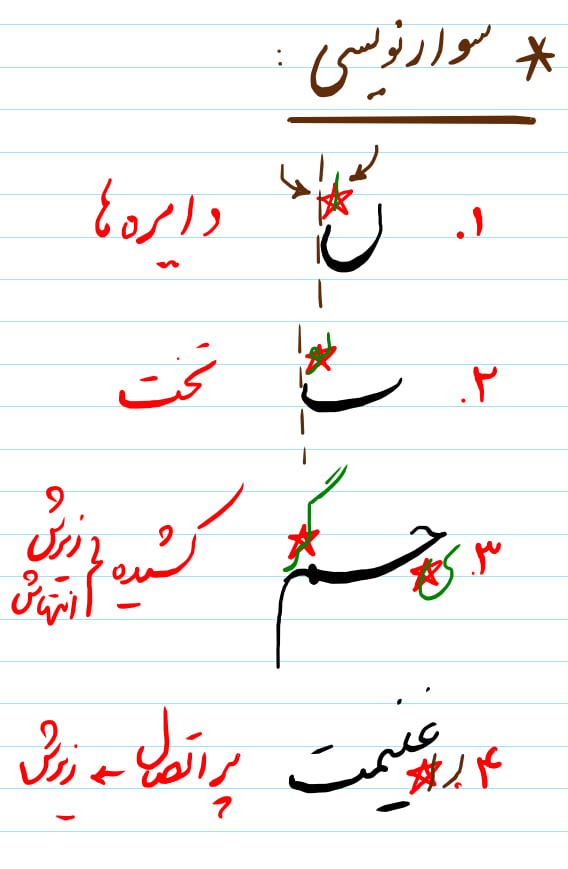 * سوارنویسی :
۱. ن دایره ها
۲. ب تخت
۳. حم کشیده زیرش انتهاش
۴. غنیمت پر اتصال ← زیرش